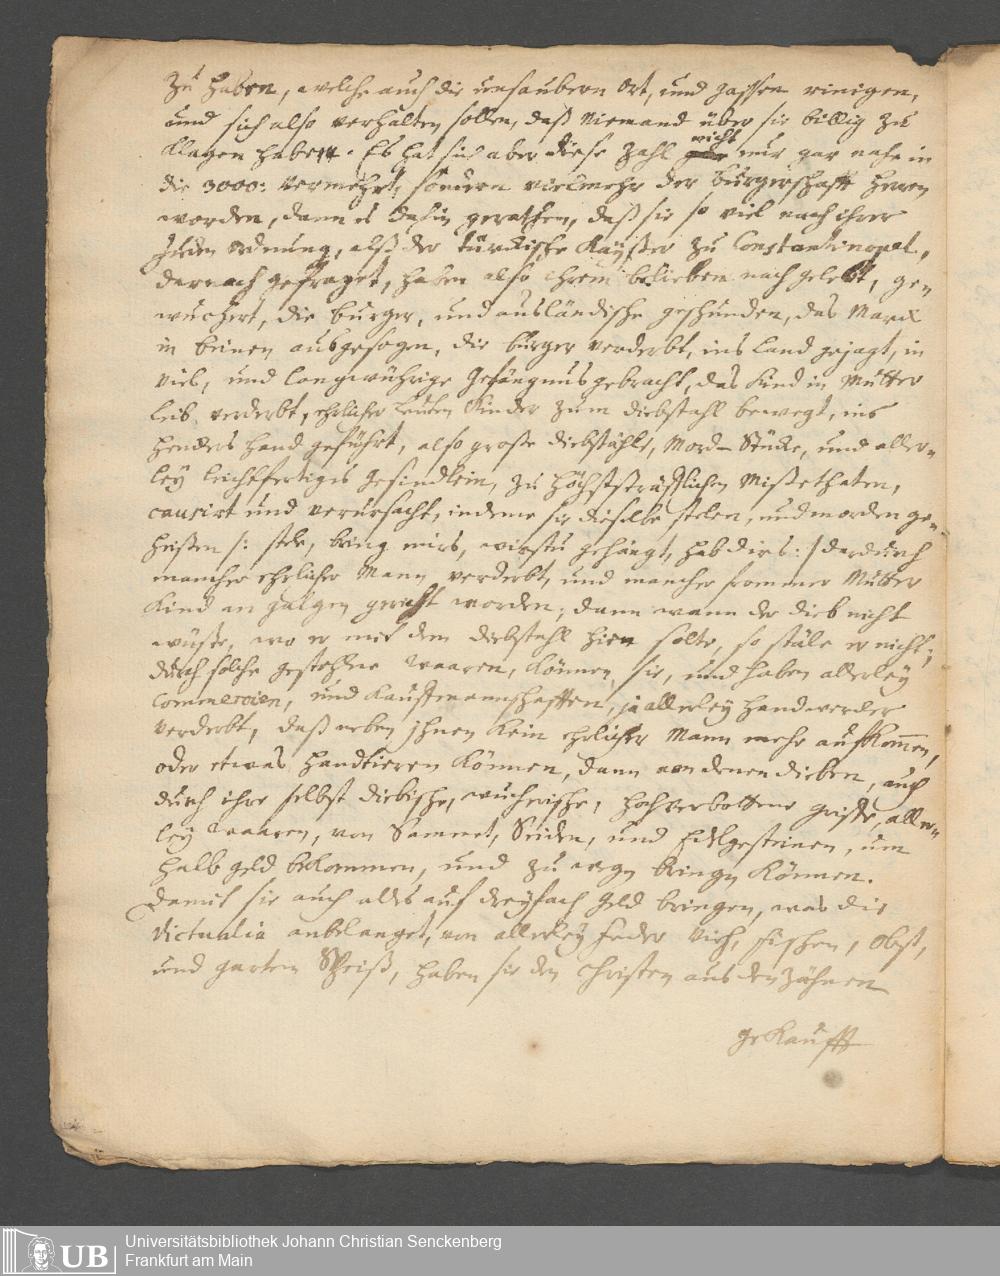 zu haben, welche auch die unsaubern Ort, und gassen reinigen,
und sich also verhalten sollen, daß Niemand über sie billig zu
klagen haben. Es hat sich aber diese Zahl nicht nur gar nahe in
die 3000: vermehrt, sondern vielmehr der burgerschafft herren
worden, dann es dahin gerathen, daß sie so viel nach ihrer
Juden ordnung, alß der türckische Kayßer zu Constantinopel,
darnach gefraget, haben also ihrem belieben nach gelebt, ge-
wuchert, die burger, und ausländische geschunden, das Marck
in beinen ausgesogen, die bürger verderbt, ins land gejagt, in
viel, und langwührige gefängnus gebracht, das Kind in Mutter
leib verderbt, ehrlicher leuthen Kinder zum diebstahl bewegt, ins
henckers hand geführt, also große diebstähle, Mord-Stücke, und aller-
ley leichtfertiges gesindlein, zu höchststräfflichen Mißethaten,
causirt und verursacht, indeme sie dieselbe stelen, und morden ge-
heißen /: stele, bring mirs, wirstu gehängt, hab dirs :/ dardurch
mancher ehrlicher Mann verderbt, und mancher frommer Mutter
Kind an galgen gericht worden; dann wann der dieb nicht
wüste, wo er mit dem diebstahl hien solte, so stäle er nicht;
durch solche gestohlne waaren, können sie, und haben allerley
Commercien, und Kauffmannschafften, ja allerley handwercker
verderbt, daß neben ihnen kein ehrlicher Mann mehr aufkommen,
oder etwas handtieren können, dann von denen dieben, auch
durch ihre selbst diebische, wucherische, hochverbottene griffe, aller-
ley waaren, von Sammet, Seiden, und Edelgesteinen, um
halb geld bekommen, und zu wegen bringen können.
Damit sie auch alles auf dreyfach geld bringen, was die
Victualia anbelanget, von allerley feder Vieh, fischen, Obst,
und garten Speiß, haben sie den Christen aus den zähnen
gekaufft
UB Universitätsbibliothek Johann Christian Senckenberg
Frankfurt am Main